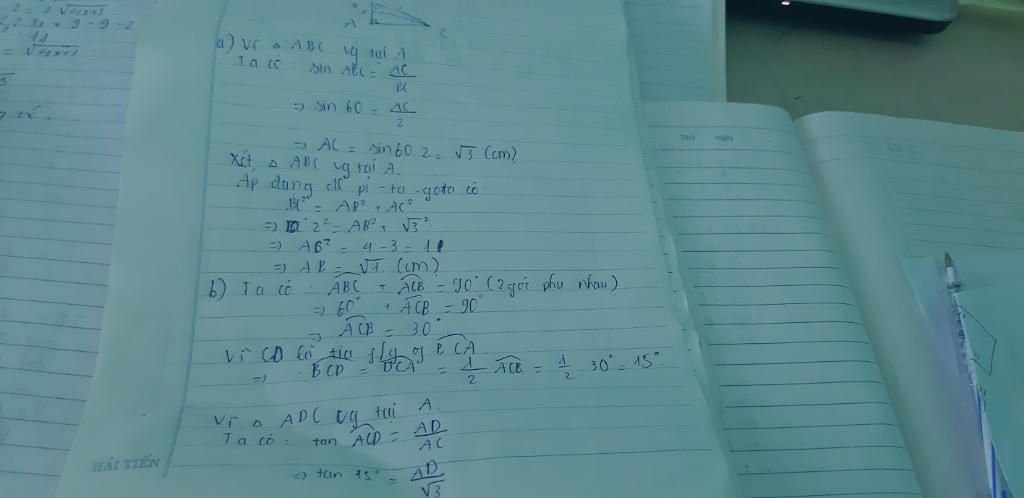 A
C
a) Vì △ ABC vg tại A
Ta có : sin ABC = AC/BC
=> sin 60 = AC/2
=> AC = sin60.2 = √3 (cm)
Xét △ ABC vg tại A.
Áp dụng đl pi-ta-go ta có
BC² = AB² + AC²
=> 2² = AB² + √3²
=> AB² = 4 - 3 = 1
=> AB = √1 (cm)
b) Ta có : ABC + ACB = 90° (2 góc phụ nhau)
=> 60° + ACB = 90°
=> ACB = 30°
Vì CD là tia of BCA
=> BCD = DCA = 1/2 ACB = 1/2 30° = 15°.
Vì △ ADC vg tại A.
Ta có : tan ACD = AD/AC
=> tan 15° = AD/√3
HẢI TIẾN
Thứ ngày